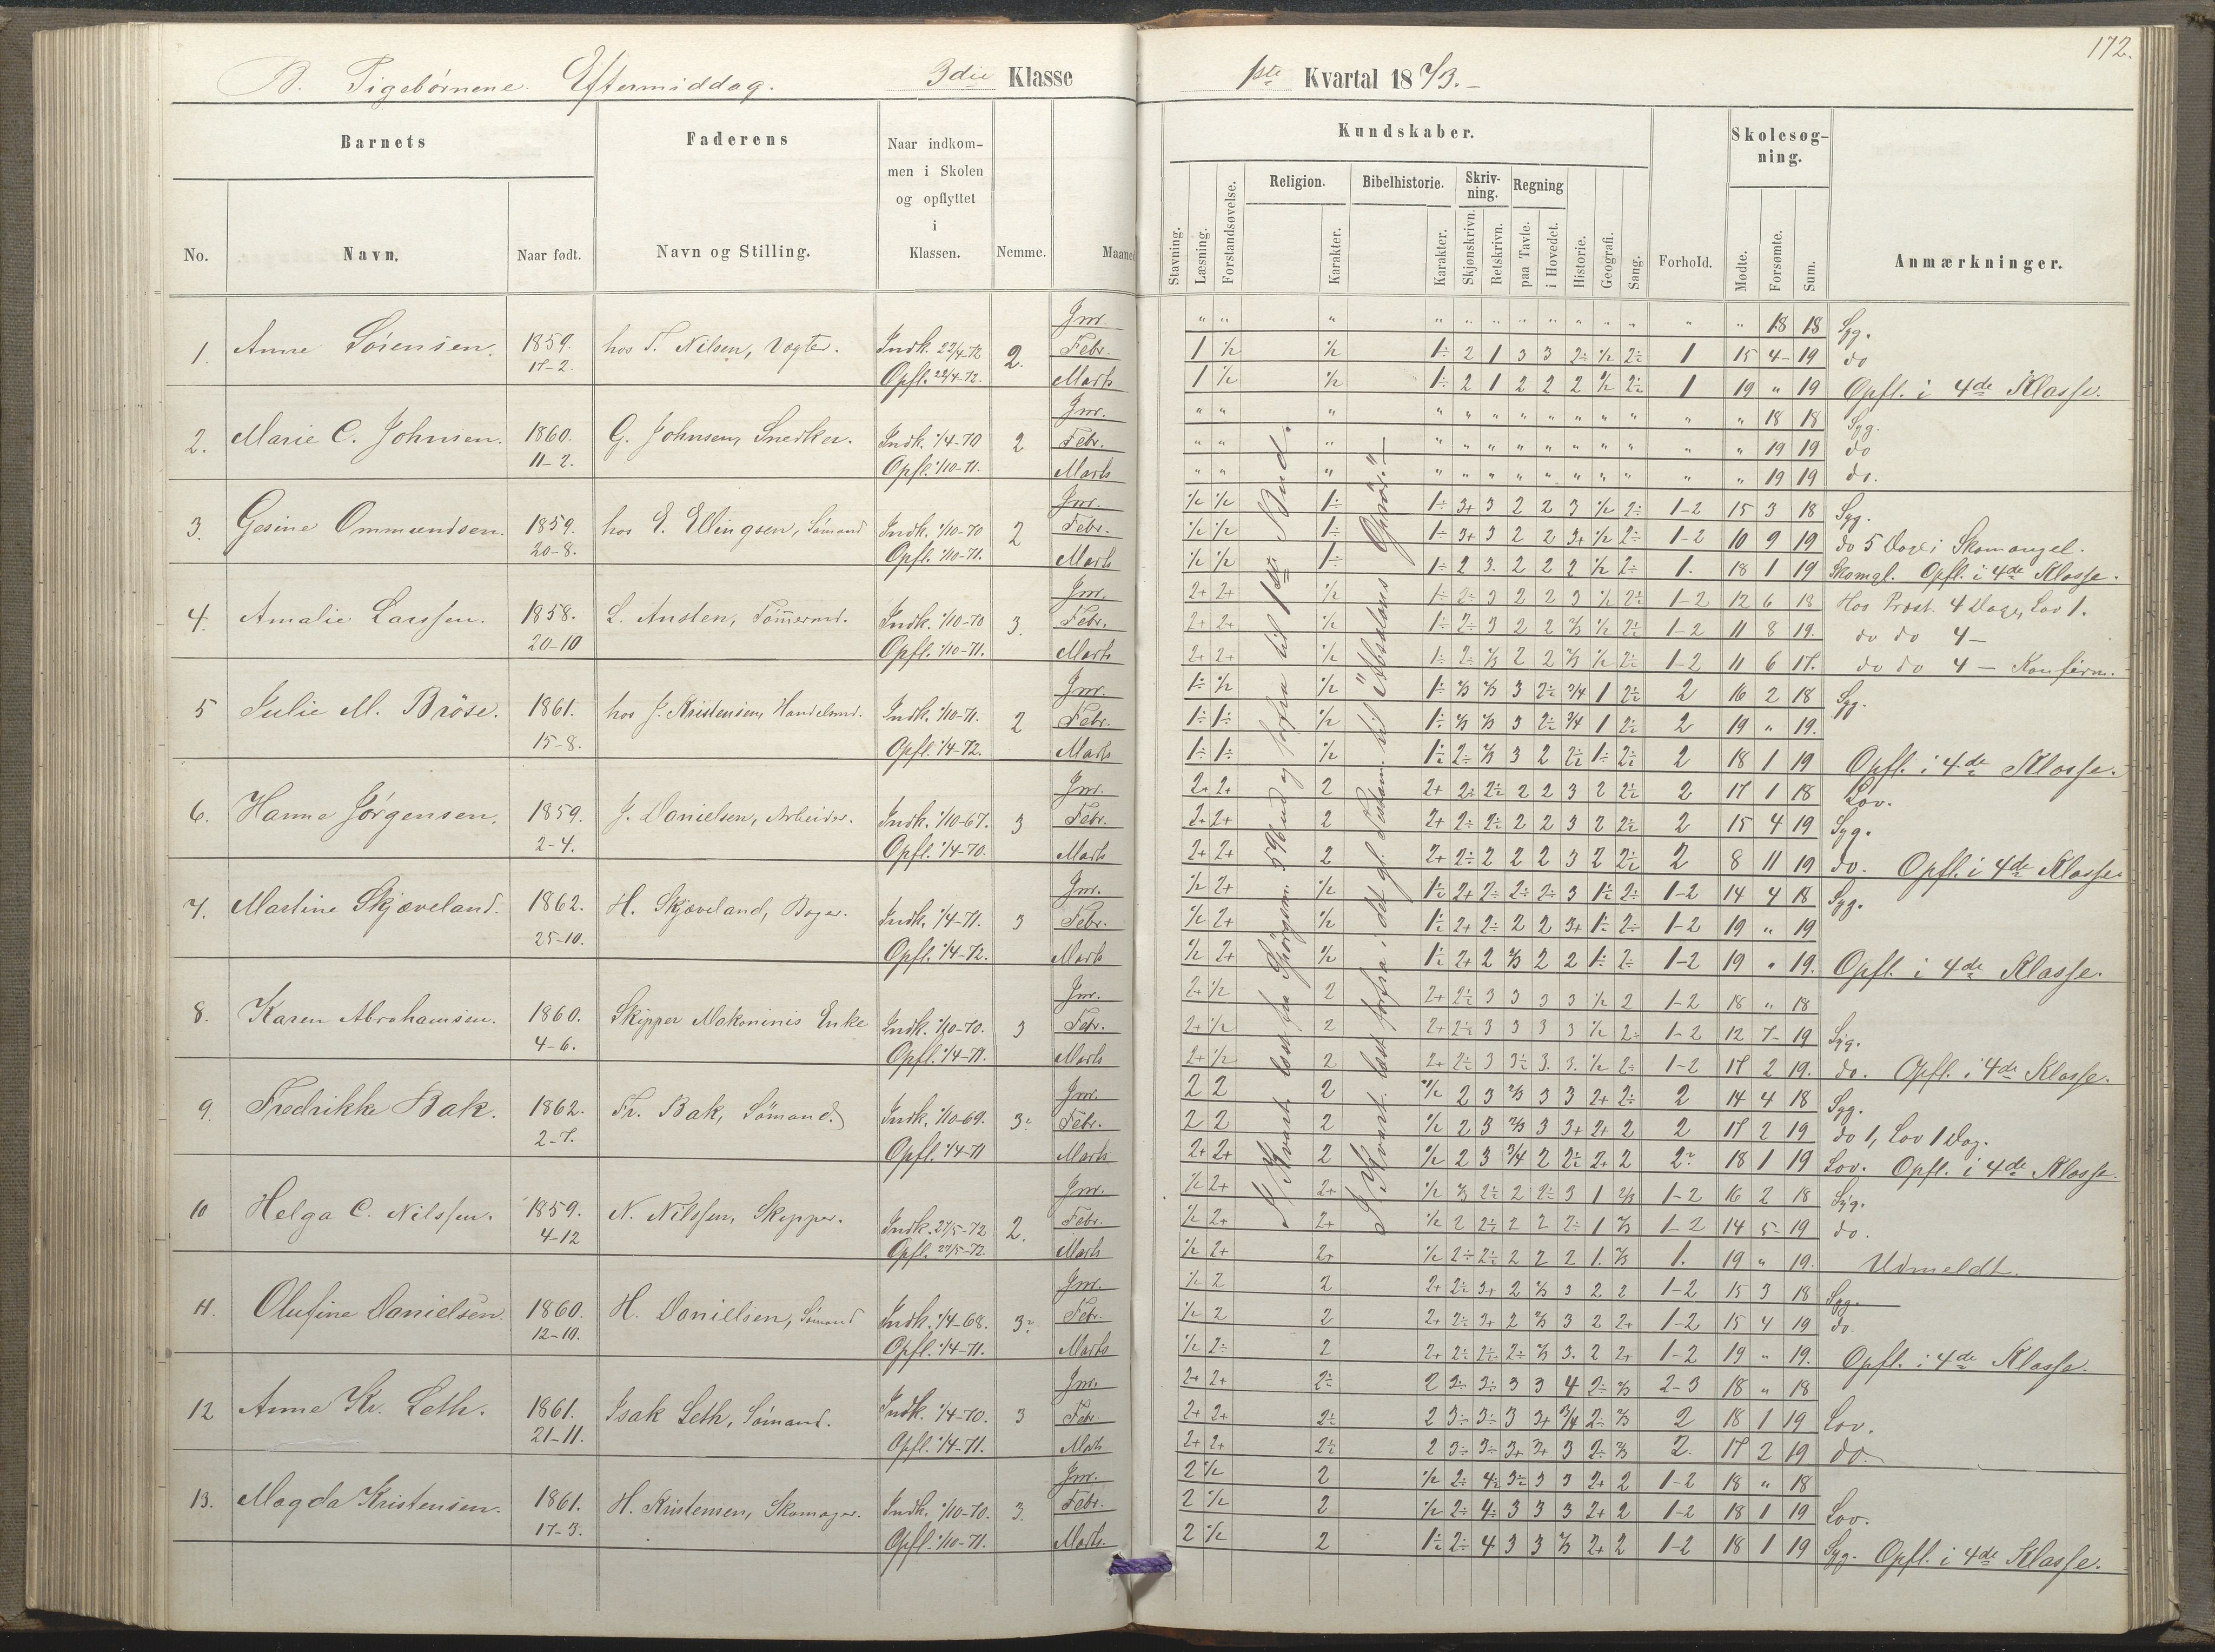 172.
B. Pigebørnene. Eftermiddag. 3die Klasse 1ste Kvartal 1873.
Barnets Faderens Naar indkommen i Skolen og opflyttet i Klassen. Nemme. Maaned
No. Navn. Naar født. Navn og Stilling.
Kundskaber. Forhold. Skolesøgning. Anmærkninger.
Stavning. Læsning. Forstandsøvelse. Religion. Karakter. Bibelhistorie. Karakter. Skrivning. Skjønskrivn. Retskrivn. Regning paa Tavle. i Hovedet. Historie. Geografi. Sang. Mødte. Forsømte. Sum.
1. Anne Sörensen. 1859. 17-2. hos T. Nilsen, Vogter. Indk. 22/4-72 Opfl. 22/4-72. 2.
Jnr. " " " " " " " " " " " " " 18 18 Syg.
Febr. 1 1/2 1/2 1÷ 2 1 3 3 2÷ 1/2 2÷ 1 15 4 19 do
Marts 1 1/2 1/2 1÷ 2 1 2 2 2 1/2 2÷ 1 19 " 19 Opfl. i 4de Klasse.
2. Marie C. Johnsen. 1860. 11-2. G. Johnsen, Snedker. Indk. 1/4-70 Opfl. 1/10-71. 2
Jnr. " " " " " " " " " " " " " 18 18 Syg.
Febr. " " " " " " " " " " " " " 19 19 do
Marts " " " " " " " " " " " " " 19 19 do.
3. Gesine Ommundsen. 1859. 20-8. hos E. Ellingsen, Sömand Indk. 1/10-70 Opfl. 1/10-71. 2
Jnr. 1/2 1/2 1÷ 1÷ 3+ 3 2 2 3 1/2 2÷ 1-2 15 3 18 Syg.
Febr. 1/2 1/2 1÷ 1÷ 3+ 3 2 2 3+ 1/2 2÷ 1-2 10 9 19 do 5 Dage; Skomangel.
Marts 1/2 1/2 1÷ 1÷ 2 3. 2 2 2 1/2 2÷ 1. 18 1 19 Skomgl. Opfl. i 4de Klasse.
4. Amalie Larssen. 1858. 20-10 L. Austen, Tömmermd. Indk. 1/10-70 Opfl. 1/10-71. 3.
Jnr. 2+ 2+ 1/2 1÷ 2÷ 3 2 2 3 1/2 2÷ 1-2 12 6 18 Hos Præst. 4 Dage, Lov 1.
Febr. 2+ 2+ 1/2 1÷ 2÷ 3 2 2 2/3 1/2 2÷ 1-2 11 8 19. do do 4 —
Marts 2+ 2+ 1/2 1÷ 2÷ 2/3 2 2 2/3 1/2 2÷ 1-2 11 6 17. do do 4 — Konfirm.
5 Julie M. Bröse. 1861. 15-8. hos J. Kristensen, Handelsmd. Indk. 1/10-71. Opfl. 1/4-72. 2
Jnr. 1÷ 1/2 1/2 1÷ 2/3 2/3 3 2÷ 3/4 1 2÷ 2 16 2 18 Syg.
Febr. 1÷ 1÷ 1/2 1÷ 2/3 2/3 3 2÷ 3/4 1 2÷ 2 19 " 19.
Marts 1÷ 1÷ 1/2 1÷ 2÷ 2/3 3 2 2÷ 1÷ 2÷ 2 18 1 19 Opfl. i 4de Klasse.
6. Hanne Jörgensen. 1859. 2-4. J. Danielsen, Arbeider. Indk. 1/10-67. Opfl. 1/4-70. 3
Jnr. 2+ 2+ 2 2+ 2÷ 2÷ 2 2 3 2 2÷ 2 17 1 18 Lov.
Febr. 2+ 2+ 2 2+ 2÷ 2÷ 2 2 3 2 2÷ 2 15 4 19 Syg.
Marts 2+ 2+ 2 2+ 2÷ 2 2 2 3 2 2÷ 2 8 11 19 do. Opfl. i 4de Klasse
7. Martine Skjæveland. 1862. 25-10. H. Skjæveland, Bager. Indk. 1/4-71. Opfl. 1/4-72. 3
Jnr. 1/2 2+ 1/2 1÷ 2+ 2÷ 2÷ 2÷ 3 1÷ 2÷ 1-2 14 4 18 Syg.
Febr. 1/2 2+ 1/2 1÷ 2+ 2÷ 2 2 3+ 1÷ 2÷ 1-2 19 " 19
Marts 1/2 2+ 1/2 1÷ 2+ 2 2/3 2 2 1÷ 2÷ 1-2 19 " 19. Opfl. i 4de Klasse.
8. Karen Abrahamsen. 1860. 4-6. Skipper Enke Indk. 1/10-70. Opfl. 1/4-71. 3
Jnr. 2+ 1/2 2 2+ 2÷ 3 3 3 3 1/2 2 1-2 18 " 18
Febr. 2+ 1/2 2 2+ 2÷ 3 3 3 3 1/2 2÷ 1-2 12 7 19 Syg.
Marts 2+ 1/2 2 2+ 2÷ 3 3÷ 3. 3. 1/2 2÷ 1-2 17 2 19. do. Opfl. i 4de Klasse.
9. Fredrikke Bak. 1862. 2-7. Fr. Bak, Sömand. Indk. 1/10-69. Opfl. 1/4-71 3÷
Jnr. 2 2 2 1/2 2 3 2/3 3 3 2+ 2÷ 2 14 4 18 Syg.
Febr. 2 2 2 1/2 2 3 2/3 3 3+ 2+ 2 2 17 2 19 do 1, Lov 1 Dag.
Marts 2+ 2+ 2 1/2 2 3 3/4 2 2÷ 2+ 2 2÷ 18 1 19 Lov. Opfl. i 4de Klasse.
10 Helga C. Nilssen. 1859. 4-12 N. Nilssen, Skipper. Indk. 27/5-72 Opfl. 27/5-72 2.
Jnr. 1/2 2+ 2+ 1/2 2/3 2÷ 2 2÷ 3 1 2/3 1-2 16 2 18 Syg.
Febr. 1/2 2+ 2+ 1/2 2 2÷ 2 2 2÷ 1 2/3 1-2 14 5 19 do.
Marts 1/2 2+ 2+ 1/2 2÷ 2÷ 2 2 2 1. 2/3 1. 19 " 19. Udmeldt.
11. Olufine Danielsen. 1860. 12-10. H. Daniellsen, Sömand Indk. 1/4-68. Opfl. 1/4-71. 3÷
Jnr. 1/2 2 2 2+ 2÷ 3+ 2 2/3 3 2 2 1-2 15 3 18 Syg.
Febr. 1/2 2 2 2+ 2÷ 3+ 2 2/3 3 2 2+ 1-2 15 4 19 do
Marts 1/2 2÷ 2 2+ 2÷ 2÷ 2÷ 2/3 3. 2 2+ 1-2 19 " 19. Opfl. i 4de Klasse.
12 Anne Kr. Leth. 1861. 21-11. Isak Leth, Sömand. Indk. 1/4-70. Opfl. 1/4-71. 3
Jnr. 2+ 2+ 2÷ 2 3÷ 3÷ 3 3 4 2÷ 2/3 2-3 18 " 18
Febr. 2+ 2+ 2÷ 2 3÷ 3÷ 3 3+ 3/4 2÷ 2/3 2 18 1 19 Lov.
Marts 2+ 2+ 2÷ 2 3÷ 3÷ 3+ 3+ 3 2÷ 2/3 2. 17 2 19 do.
13. Magda Kristensen. 1861. 17-3. H. Kristensen, Skomager. Indk. 1/10-70. Opfl. 1/10-71. 3.
Jnr. 2 1/2 2 1/2 2÷ 4÷ 3÷ 3 3 2+ 2 1-2 18 " 18
Febr. 2 1/2 2 1/2 2÷ 4÷ 3 3 3 2+ 2 1-2 18 1 19 Lov.
Marts. 2 1/2 2 1÷ 2÷ 4 3 3 2/3 2+ 2 1-2 18 1 19 Syg. Opfl. i 4de Klasse.
I Kvart. læst fra Spörgsm. 5 forfra til 1ste Bud.
I Kvart. læst forfra i det gl. Testam. til "Absalons Oprör."